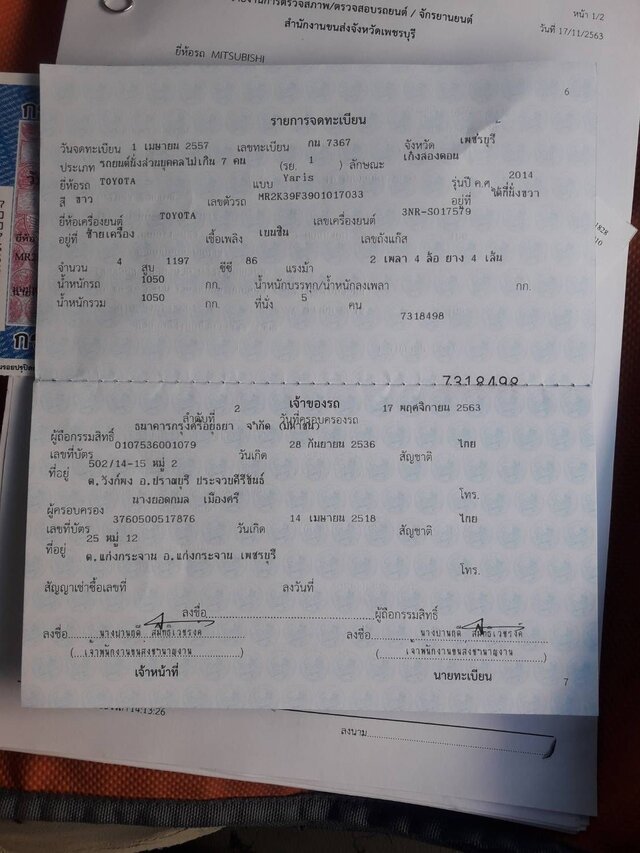 งานการตรวจสภาพ/ตรวจสอบรถยนต์ / จักรยานยนต์
หน้า 1/2
สำนักงานขนส่งจังหวัดเพชรบุรี
วันที่ 17/11/2563
ยี่ห้อรถ MITSUBISHI
6
รายการจดทะเบียน
วันจดทะเบียน 1 เมษายน 2557 เลขทะเบียน กน 7367 จังหวัด เพชรบุรี
ประเภท รถยนต์นั่งส่วนบุคคลไม่เกิน 7 คน (รย. 1 ) ลักษณะ เก๋งสองตอน
ยี่ห้อรถ TOYOTA แบบ Yaris รุ่นปี ค.ศ 2014
สี ขาว เลขตัวรถ MR2K39F3901017033 อยู่ที่ ใต้ที่นั่งขวา
ยี่ห้อเครื่องยนต์ TOYOTA เลขเครื่องยนต์ 3NR-S017579
อยู่ที่ ซ้ายเครื่อง เชื้อเพลิง เบนซิน เลขถังแก๊ส
จำนวน 4 สูบ 1197 ซีซี 86 แรงม้า 2 เพลา 4 ล้อ ยาง 4 เส้น
น้ำหนักรถ 1050 กก. น้ำหนักบรรทุก/น้ำหนักลงเพลา กก.
น้ำหนักรวม 1050 กก. ที่นั่ง 5 คน
7318498
7318498
เจ้าของรถ
ลำดับที่ 2 วันที่ครอบครองรถ 17 พฤศจิกายน 2563
ผู้ถือกรรมสิทธิ์ ธนาคารกรุงศรีอยุธยา จำกัด (มหาชน)
เลขที่บัตร 0107536001079 วันเกิด 28 กันยายน 2536 สัญชาติ ไทย
ที่อยู่ 502/14-15 หมู่ 2
ต.วังก์พง อ.ปราณบุรี ประจวบคีรีขันธ์
โทร.
ผู้ครอบครอง นางยอดกมล เมืองศรี
เลขที่บัตร 3760500517876 วันเกิด 14 เมษายน 2518 สัญชาติ ไทย
ที่อยู่ 25 หมู่ 12
ต.แก่งกระจาน อ.แก่งกระจาน เพชรบุรี
โทร.
สัญญาเช่าซื้อเลขที่ ลงวันที่
ลงชื่อ ผู้ถือกรรมสิทธิ์
ลงชื่อ ลงชื่อ
(เจ้าพนักงานขนส่งชำนาญงาน) (เจ้าพนักงานขนส่งชำนาญงาน)
เจ้าหน้าที่ นายทะเบียน
7
14:13:26
ลงนาม